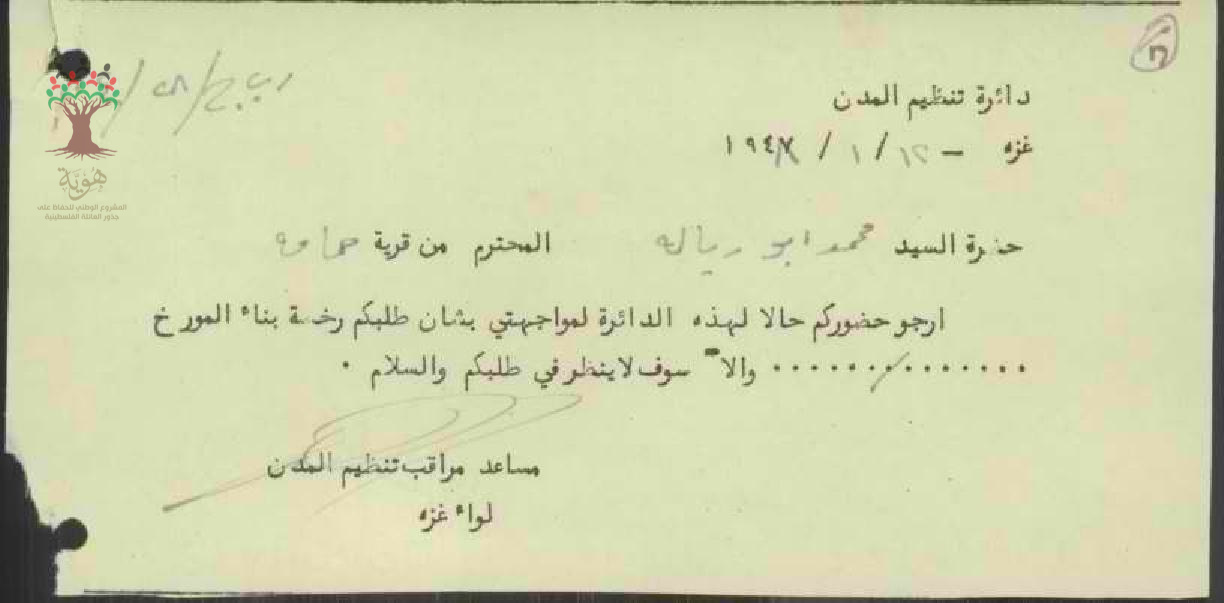 دائرة تنظيم المدن
غزه — ١٢ / ١ / ١٩٤٨
حضرة السيد محمد ابو رياله المحترم من قرية حمامه
ارجو حضوركم حالا لهذه الدائرة لمواجهتي بشان طلبكم رخصة بناء المورخ
............../...... والا سوف لا ينظر في طلبكم والسلام .
مساعد مراقب تنظيم المدن
لواء غزه
هُويّة
المشروع الوطني للحفاظ على
جذور العائلة الفلسطينية